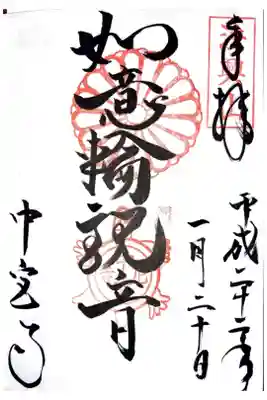 奉拝
平成二十二年
一月二十日
如意輪観音
中宮寺